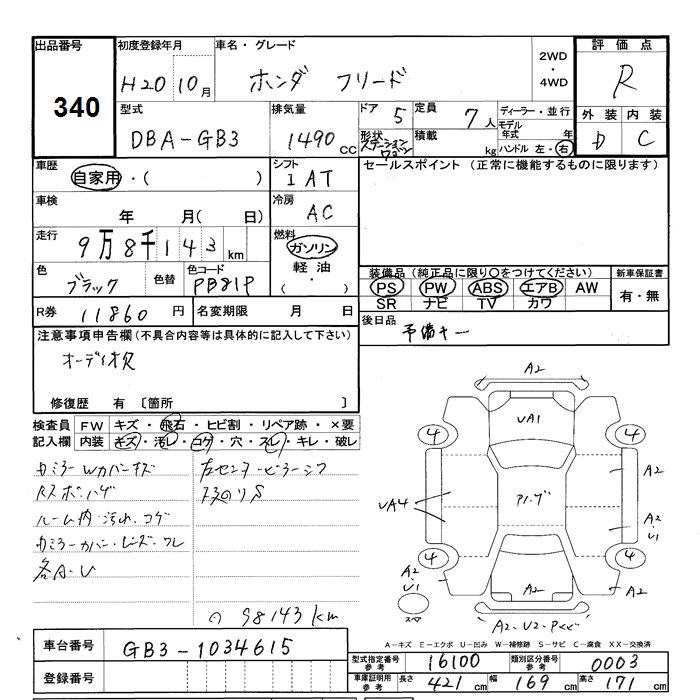 出品番号 初度登録年月 車名・グレード 2WD・4WD 評価点
340 H20 10月 ホンダ フリード R
型式 排気量 ドア 5 定員 7人 ディーラー・並行 外装 内装
DBA-GB3 1490cc 形状 ステーションワゴン 積載 kg モデル年式 年 D C
ハンドル 左・右
車歴 自家用・( ) シフト IAT セールスポイント (正常に機能するものに限ります)
車検 年 月( 日) 冷房 AC
走行 9万8千143km 燃料 ガソリン
軽油・( )
色 ブラック 色替 色コード PB81P
装備品(純正品に限り○をつけてください) 新車保証書
PS PW ABS エアB AW 有・無
SR ナビ TV カワ
R券 11860円 名変期限 月 日 後日品 予備キー
注意事項申告欄(不具合内容等は具体的に記入して下さい)
オーディオ欠
修復歴 有 〔箇所 〕
検査員 FW キズ・飛石・ヒビ割・リペア跡・×要
記入欄 内装 キズ・汚レ・コゲ・穴・スレ・キレ・破レ
カミラーWカバーキズ 左センターピラーシワ
ルーム内・汚れ・コゲ
各A・U
98143km
A2
UA1
4 4
A2
UA4
A2・U1
4 4
A2・U1 A2 A2
スペア
A-キズ E-エクボ U-凹み W-補修跡 S-サビ C-腐食 XX-交換済
車台番号 GB3-1034615
型式指定番号 参考 16100 類別区分番号 参考 0003
登録番号
車庫証明用 参考 長さ 421cm 幅 169cm 高さ 171cm